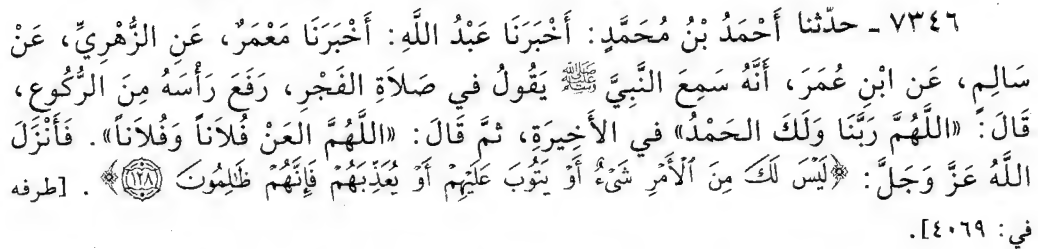 ٧٣٤٦ - حدّثنا أَحْمَدُ بْنُ مُحَمَّدٍ: أَخْبَرَنَا عَبْدُ اللَّهِ: أَخْبَرَنَا مَعْمَرٌ، عَنِ الزُّهْرِيِّ، عَنْ
سَالِمٍ، عَن ابْنِ عُمَرَ، أَنَّهُ سَمِعَ النَّبِيَّ ﷺ يَقُولُ في صَلاَةِ الفَجْرِ، رَفَعَ رَأْسَهُ مِنَ الرُّكُوعِ،
قَالَ: «اللَّهُمَّ رَبَّنَا وَلَكَ الحَمْدُ» في الأَخِيرَةِ، ثمَّ قَالَ: «اللَّهُمَّ العَنْ فُلاَناً وَفُلاَناً». فَأَنْزَلَ
اللَّهُ عَزَّ وَجَلَّ: ﴿لَيْسَ لَكَ مِنَ ٱلْأَمْرِ شَىْءٌ أَوْ يَتُوبَ عَلَيْهِمْ أَوْ يُعَذِّبَهُمْ فَإِنَّهُمْ ظَٰلِمُونَ ١٢٨﴾. [طرفه
في: ٤٠٦٩].